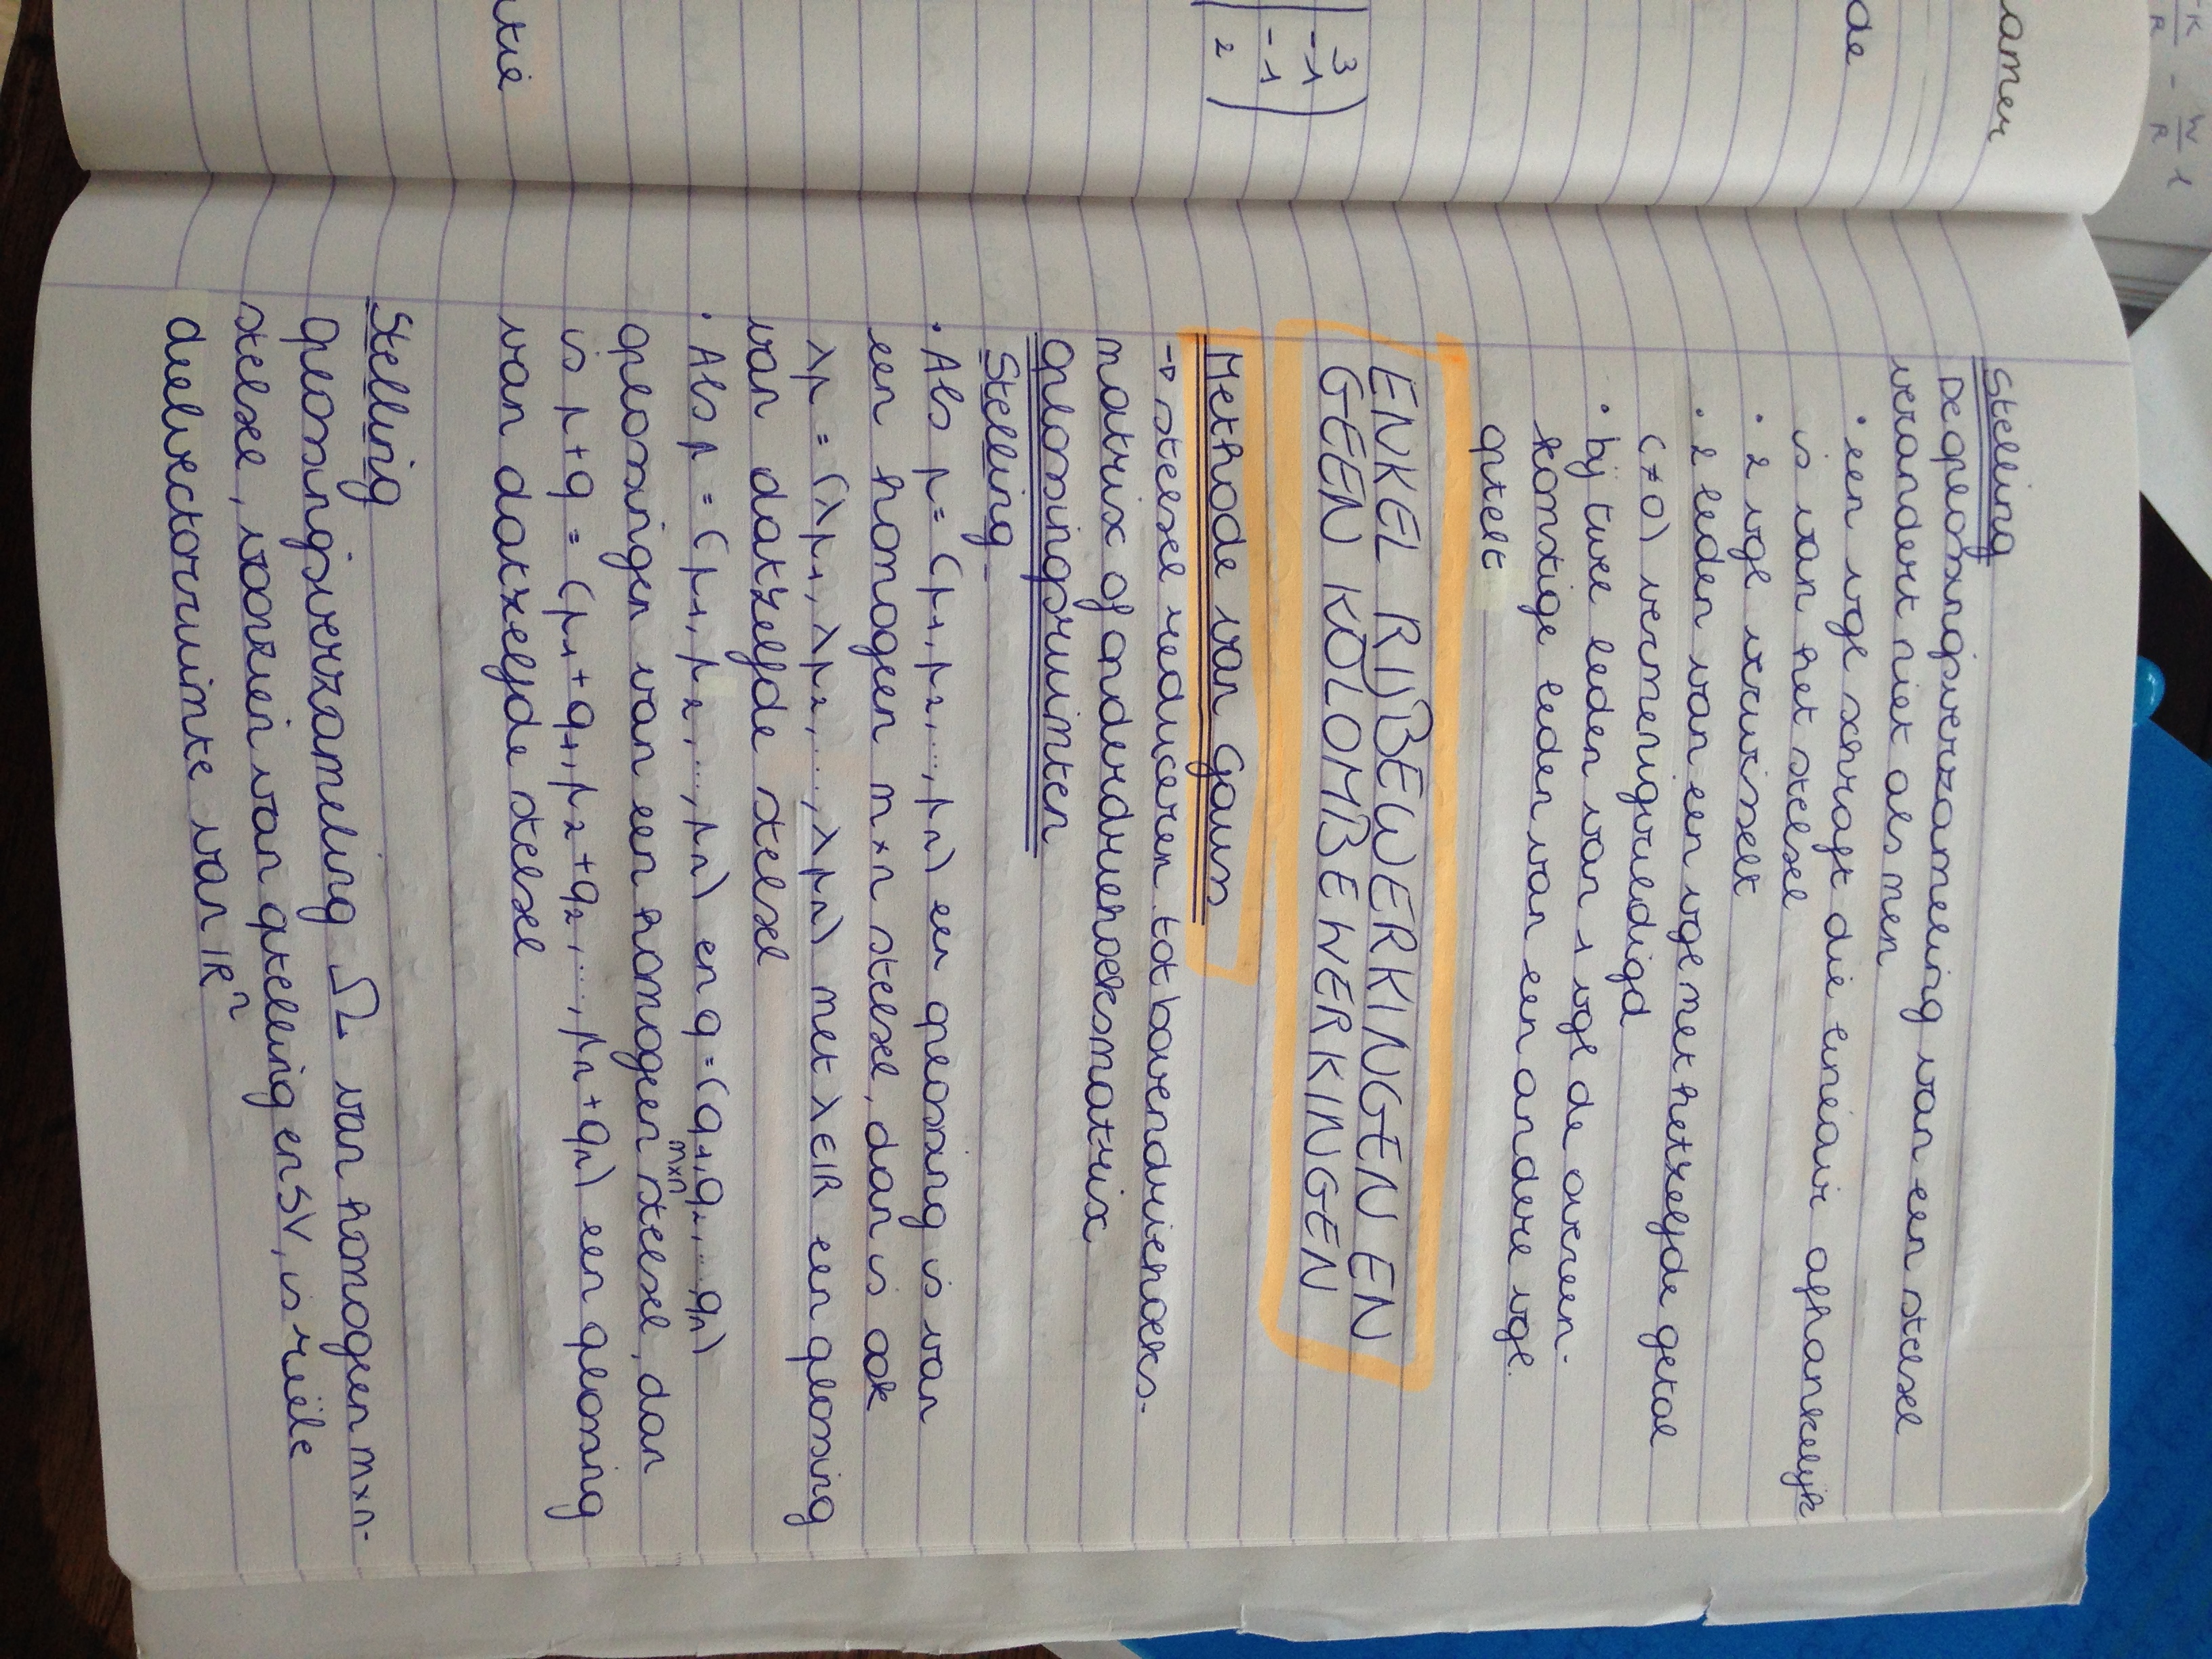 amer
de
3
-1
-1
2
tie
Stelling
De oplossingsverzameling van een stelsel
verandert niet als men
· een vgl schrapt die lineair afhankelijk
is van het stelsel
· 2 vgl verwisselt
· 2 leden van een vgl met hetzelfde getal
(≠0) vermenigvuldigd
· bij twee leden van 1 vgl de overeen-
komstige leden van een andere vgl.
optelt
ENKEL RIJBEWERKINGEN EN
GEEN KOLOMBEWERKINGEN
Methode van Gauss
→ stelsel reduceren tot bovendriehoeks-
matrix of onderdriehoeksmatrix
Oplossingsruimten
Stelling
· Als p = (p1, p2, ..., pn) een oplossing is van
een homogeen m×n stelsel, dan is ook
λp = (λp1, λp2, ..., λpn) met λ∈IR een oplossing
van datzelfde stelsel
· Als p = (p1, p2, ..., pn) en q = (q1, q2, ... qn)
oplossingen van een homogeen m×n stelsel, dan
is p+q = (p1+q1, p2+q2, ..., pn+qn) een oplossing
van datzelfde stelsel
Stelling
Oplossingsverzameling Ω van homogeen m×n-
stelsel, voorzien van optelling en SV, is reële
deelvectorruimte van IRⁿ